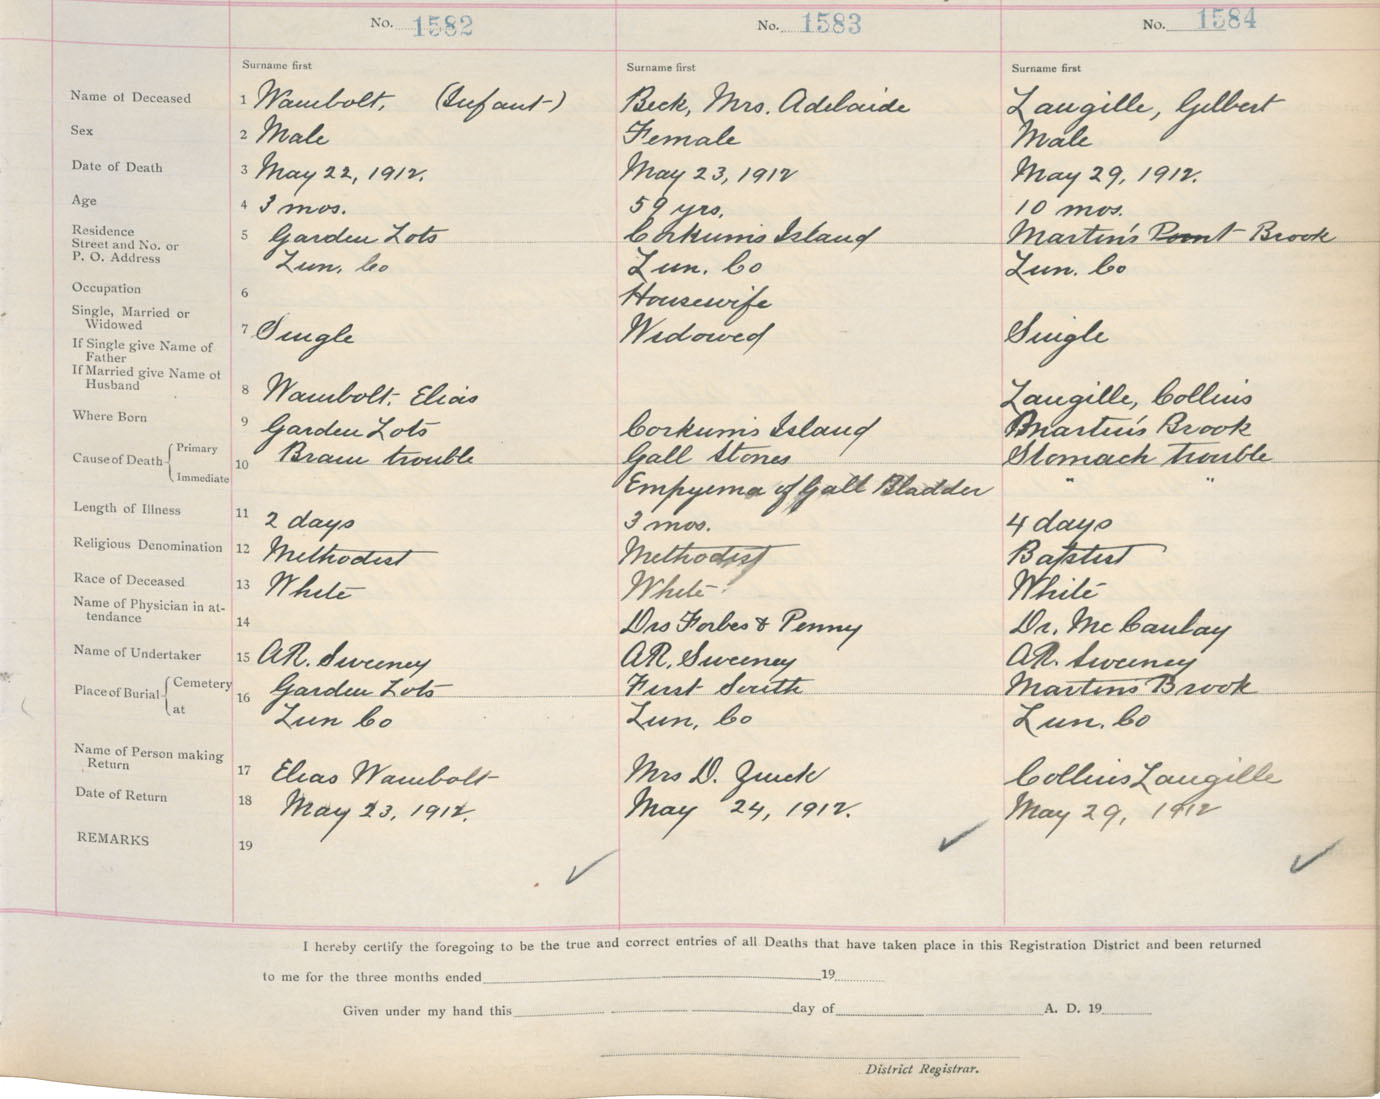 No. 1582 No. 1583 No. 1584
Surname first Surname first Surname first
Name of Deceased 1 Wambolt, (Infant) Beck, Mrs. Adelaide Langille, Gilbert
Sex 2 Male Female Male
Date of Death 3 May 22, 1912. May 23, 1912 May 29, 1912.
Age 4 3 mos. 59 yrs. 10 mos.
Residence
Street and No. or 5 Garden Lots Corkum's Island Martin's Point Brook
P. O. Address Lun. Co Lun. Co Lun. Co
Occupation 6 Housewife
Single, Married or
Widowed 7 Single Widowed Single
If Single give Name of
Father
If Married give Name of
Husband 8 Wambolt, Elias Langille, Collins
Where Born 9 Garden Lots Corkum's Island Martin's Brook
Cause of Death Primary 10 Brain trouble Gall Stones Stomach trouble
Immediate Empyema of Gall Bladder " "
Length of Illness 11 2 days 3 mos. 4 days
Religious Denomination 12 Methodist Methodist Baptist
Race of Deceased 13 White White White
Name of Physician in at-
tendance 14 Drs Forbes & Penny Dr. McCaulay
Name of Undertaker 15 A.R. Sweeney A.R. Sweeney A.R. Sweeney
Place of Burial Cemetery 16 Garden Lots First South Martins Brook
at Lun Co Lun, Co Lun. Co
Name of Person making
Return 17 Elias Wambolt Mrs D. Zinck Collins Langille
Date of Return 18 May 23, 1912. May 24, 1912. May 29, 1912
REMARKS 19
I hereby certify the foregoing to be the true and correct entries of all Deaths that have taken place in this Registration District and been returned
to me for the three months ended 19
Given under my hand this day of A. D. 19
District Registrar.